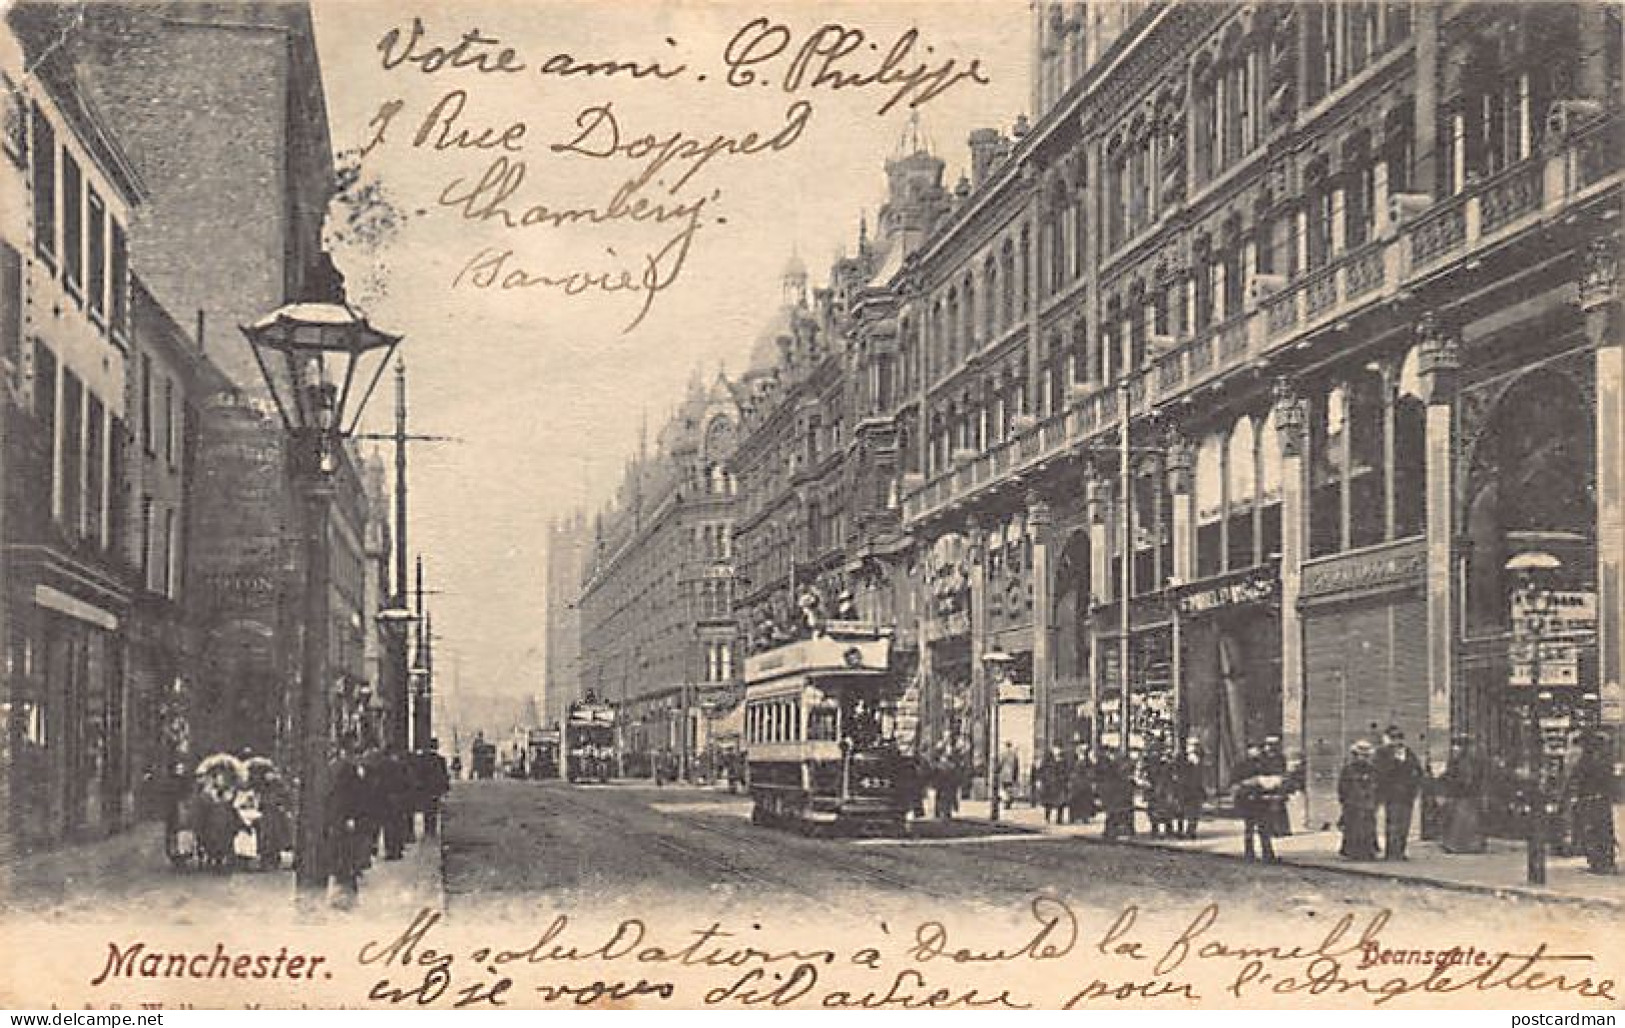 Votre ami. C. Philippe
7 Rue Doppet
Chambéry.
(Savoie)
437
Manchester.
Deansgate.
Mes salutations à toute la famille
et je vous dit adieu pour l'Angleterre
Manchester
delcampe.net
postcardman